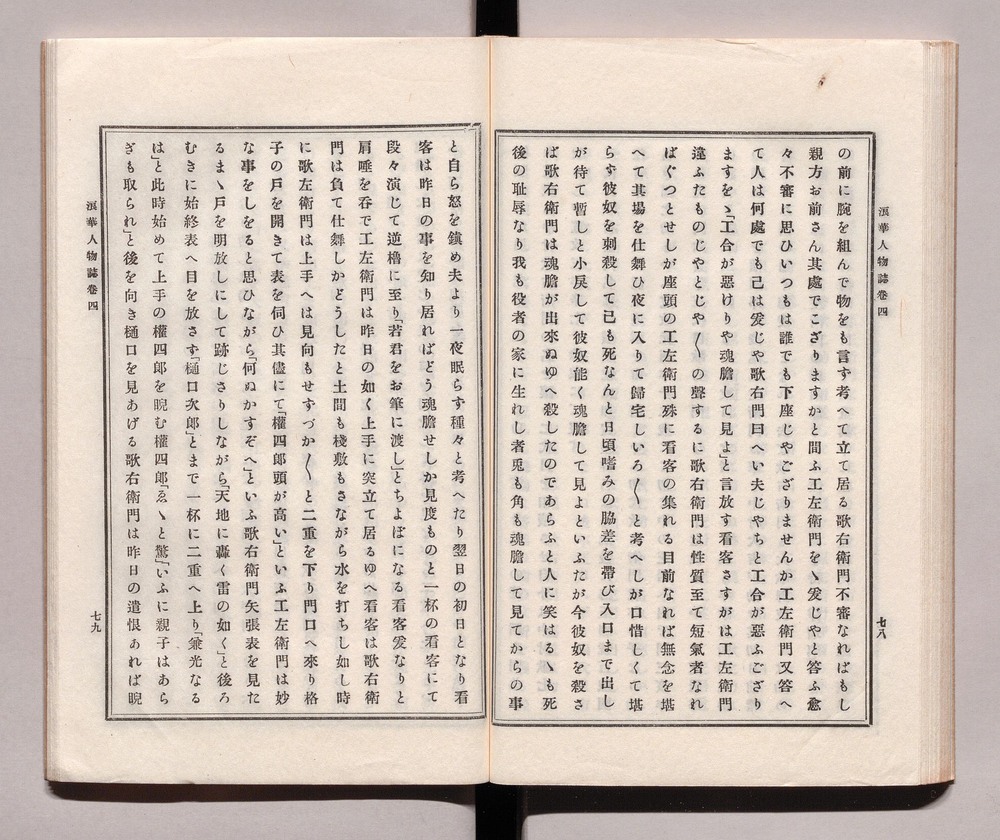 浪華人物誌卷四
七八
の前に腕を組んで物をも言す考へて立て居る歌右衞門不審なればもし
親方お前さん其處でこざりますかと問ふ工左衞門をヽ爰じやと答ふ愈
々不審に思ひいつもは誰でも下座じやござりませんか工左衞門又答へ
て人は何處でも己は爰じや歌右門曰へい夫じやちと工合が惡ふござり
ますをヽ「工合が惡けりや魂膽して見よ」と言放す看客さすがは工左衞門
違ふたものじやとじや〱の聲するに歌右衞門は性質至て短氣者なれ
ばぐつとせしが座頭の工左衞門殊に看客の集れる目前なれば無念を堪
へて其場を仕舞ひ夜に入りて歸宅しいろ〱と考へしが口惜しくて堪
らず彼奴を刺殺して己も死なんと日頃嗜みの脇差を帶び入口まで出し
が待て暫しと小戾して彼奴能く魂膽して見よといふたが今彼奴を殺さ
ば歌右衞門は魂膽が出來ぬゆへ殺したのであらふと人に笑はるヽも死
後の耻辱なり我も役者の家に生れし者兎も角も魂膽して見てからの事
と自ら怒を鎭め夫より一夜眠らす種々と考へたり翌日の初日となり看
客は昨日の事を知り居ればどう魂膽せしか見度ものと一杯の看客にて
段々演じて逆櫓に至り「若君をお筆に渡し」とちよぼになる看客爰なりと
肩唾を呑で工左衞門は昨日の如く上手に突立て居るゆへ看客は歌右衞
門は負て仕舞しかどうしたと土間も棧敷もさながら水を打ちし如し時
に歌左衞門は上手へは見向もせすづか〱と二重を下り門口へ來り格
子の戸を開きて表を伺ひ其儘にて「權四郞頭が高い」といふ工左衞門は妙
な事をしをると思ひながら「何ぬかすぞへ」といふ歌右衞門矢張表を見た
るまヽ戸を明放しにして跡じさりしながら「天地に轟く雷の如く」と後ろ
むきに始終表へ目を放さす「樋口次郞」とまで一杯に二重へ上り「兼光なる
は」と此時始めて上手の權四郞を睨む權四郞「ゑヽと驚」いふに親子はあら
ぎも取られ」と後を向き樋口を見あげる歌右衞門は昨日の遺恨あれば睨
浪華人物誌卷四
七九